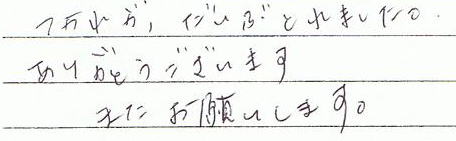 つかれが、だいぶとれました。
ありがとうございます
またお願いします。